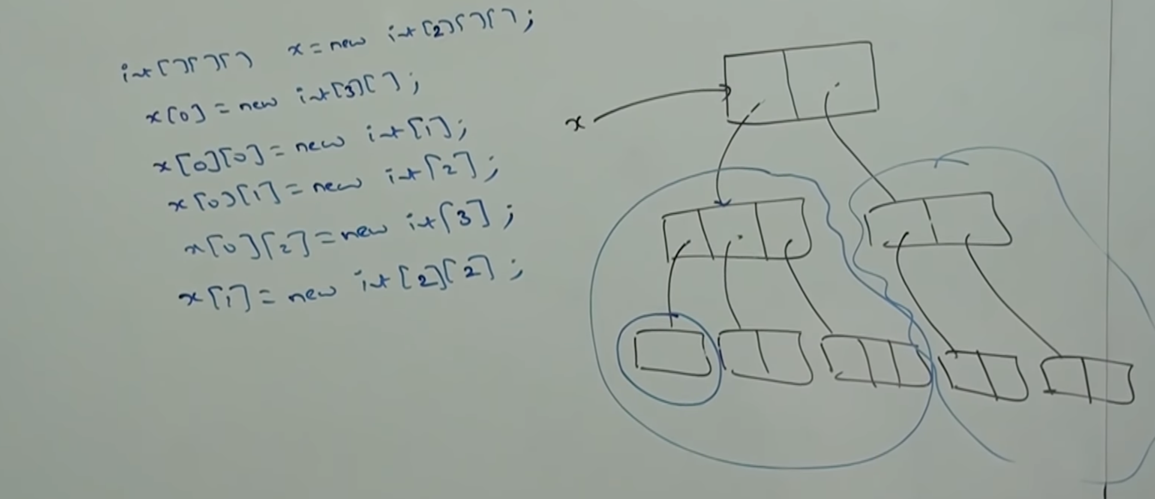 int[][][] x = new int[2][][];
x[0] = new int[3][];
x[0][0] = new int[1];
x[0][1] = new int[2];
x[0][2] = new int[3];
x[1] = new int[2][2];
x